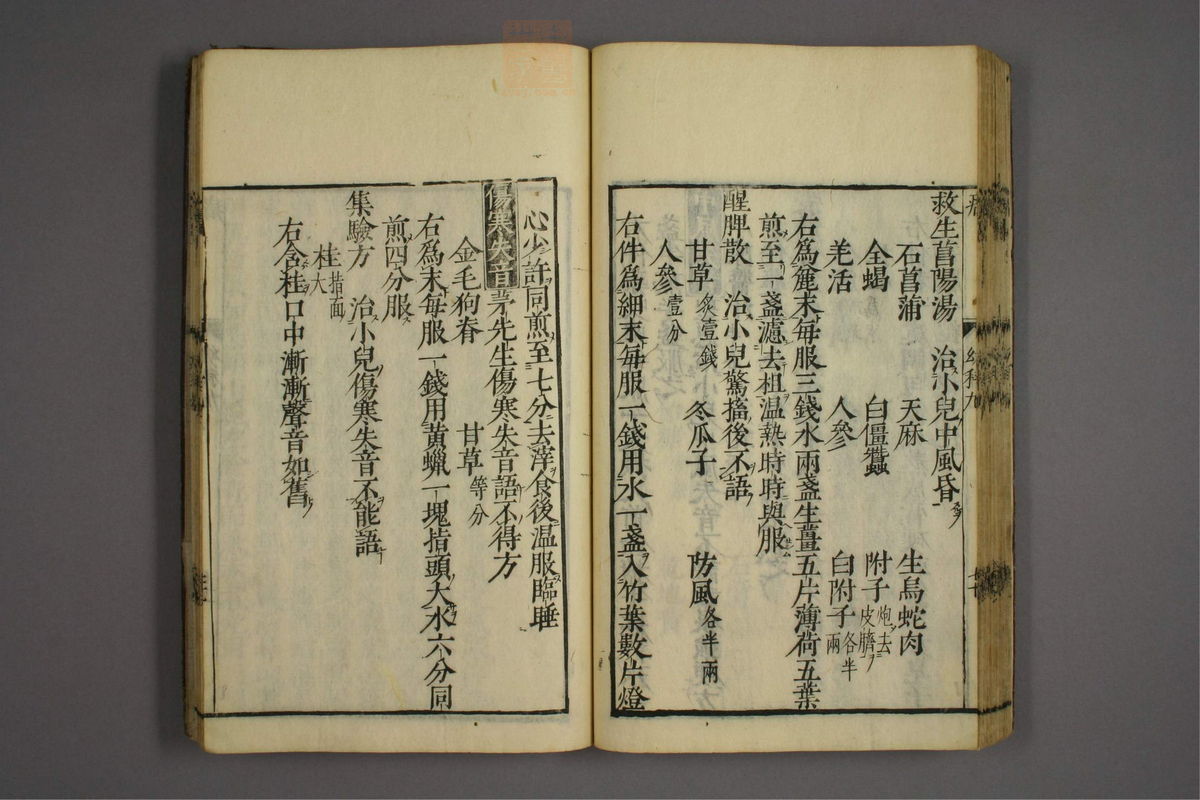 救生菖陽湯　治小兒中風昏
石菖蒲　天麻　生烏蛇肉
全蝎　白僵蠶　附子炮去皮臍
羌活　人參　白附子各半兩
右為麄末每服三錢水兩盞生薑五片薄荷五葉
煎至一盞濾去柤温熱時時與服
醒脾散　治小兒驚搐後不語
甘草炙壹錢　冬瓜子　防風各半兩
人參壹分
右件為細末每服一錢用水一盞入竹葉數片燈
心少許同煎至七分去滓食後温服臨睡
傷寒失音茅先生傷寒失音語不得方
金毛狗脊　甘草等分
右為末每服一錢用黄蝋一塊指頭大水六分同
煎四分服
集驗方　治小兒傷寒失音不能語
桂大指面
右含桂口中漸漸聲音如舊